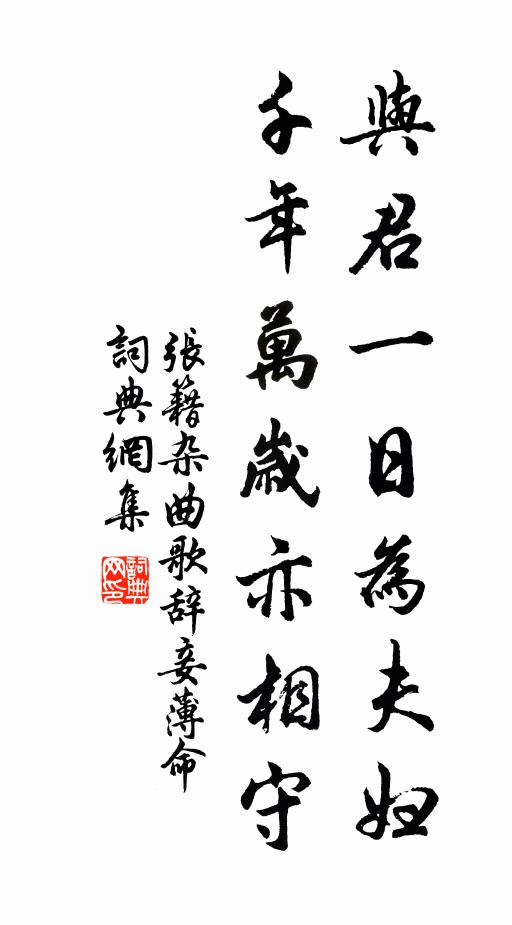 與君一日為夫婦
千年萬歲亦相守
張籍杂曲歌辞妾薄命
詞典網集
詞典
网印